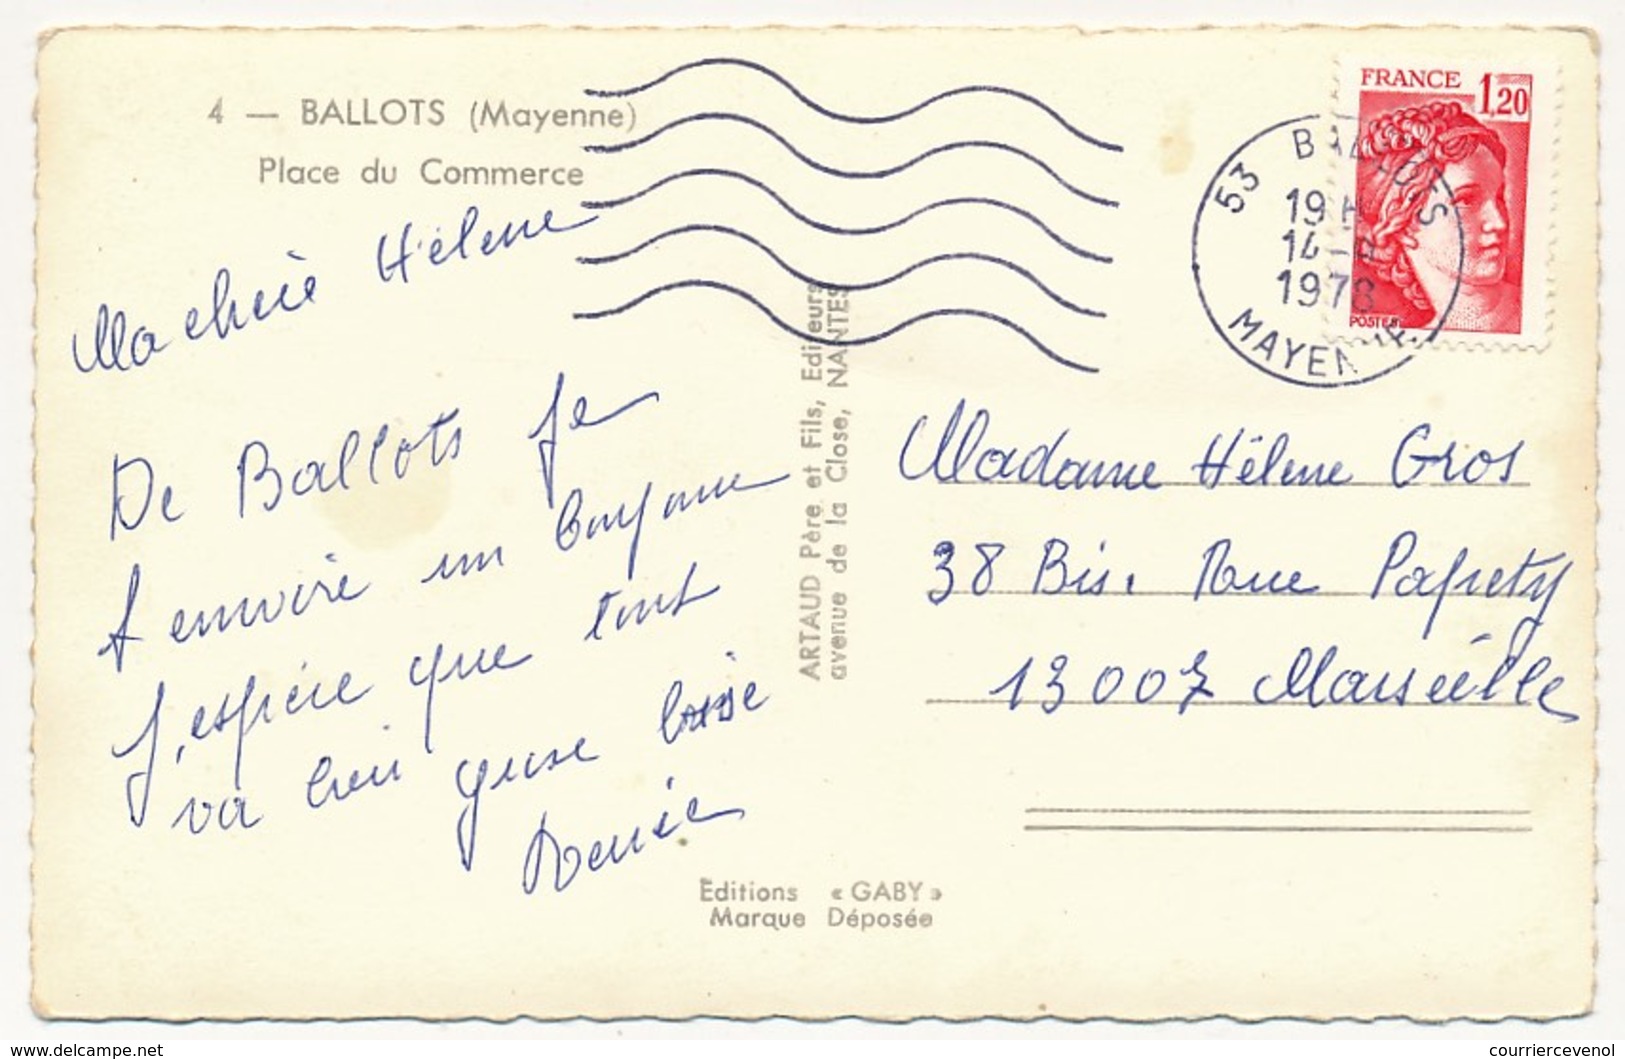 4 — BALLOTS (Mayenne)
Place du Commerce
Ma cherie Hélene
De Ballots Je
t envoire un
J,espère que tout
va bien grose bise
Denise
ARTAUD Père et Fils, Editeurs
avenue de la Close, NANTES
Editions « GABY »
Marque Déposée
FRANCE 1,20
POSTES
53 MAYENNE
19 H
14-8
1978
Madame Hélene Gros
38 Bis. Rue Papety
13007 Marseille
delcampe.net
courriercevenol